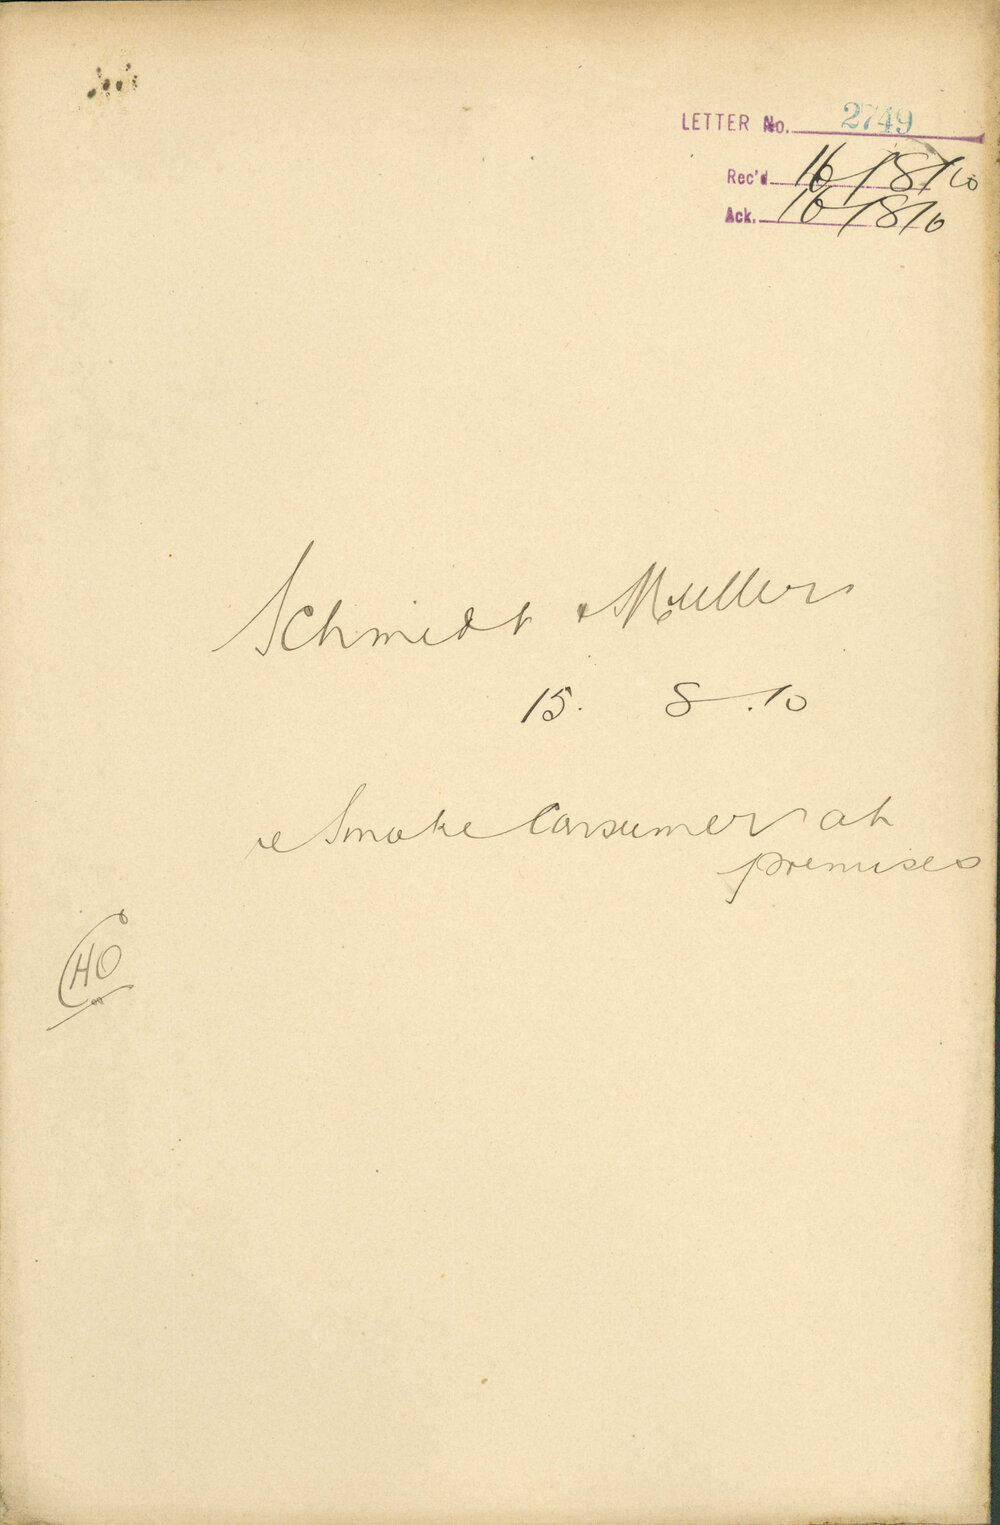 LETTER No. 2749
Rec'd 16/8/10
Ack. 16/8/10
Schmidt & Muller
15. 8 .10
re Smoke Consumer at
premises
CHO